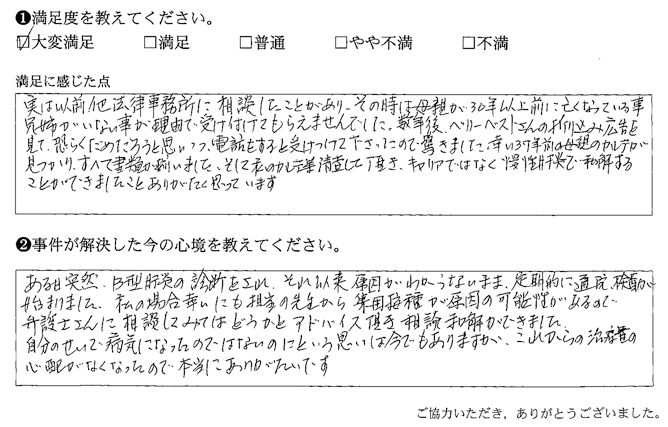 ❶満足度を教えてください。
☑大変満足 □満足 □普通 □やや不満 □不満
満足に感じた点
実は以前他法律事務所に相談したことがあり、その時は母親が30年以上前に亡くなっている事
兄姉がいない事が理由で受け付けてもらえませんでした。数年後、ベリーベストさんの折り込み広告を
見て、恐らくだめだろうと思いつつ、電話をすると受けつけて下さったので驚きました。幸い37年前の母親のカルテが
見つかり、すべて書類が揃いました。そして私のカルテ等精査して頂き、キャリアではなく慢性肝炎で和解する
ことができましたことありがたく思っています
❷事件が解決した今の心境を教えてください。
ある日突然、B型肝炎の診断をされ、それ以来原因がわからないまま、定期的に通院、検査が
始まりました。私の場合幸いにも担当の先生から集団接種が原因の可能性があるので
弁護士さんに相談してみてはどうかとアドバイス頂き相談、和解ができました
自分のせいで病気になったのではないのにという思いは今でもありますが、これからの治療費の
心配がなくなったので本当にありがたいです
ご協力いただき、ありがとうございました。